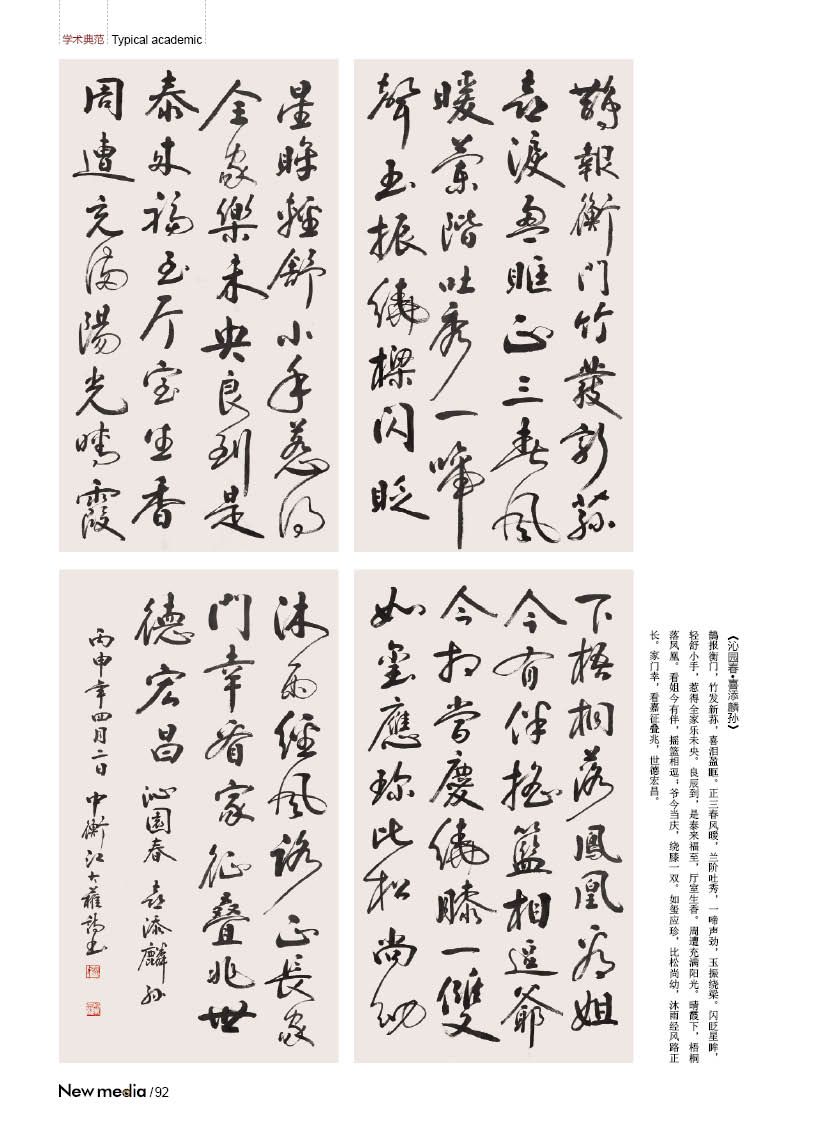 学术典范 Typical academic
鵲報衡門竹發新蓀
喜淚盈眶正三春風
暖蘭階吐秀一啼
聲玉振繞樑閃眨
星眸輕舒小手惹得
全家樂未央良到是
泰來福至厅室生香
周遭充滿陽光晴霞
下梧桐落鳳凰看姐
今有伴搖籃相逗爺
今當慶繞膝一雙
如璽應珍比松尚幼
沐雨經風路正長家
門幸看家征叠兆世
德宏昌 沁園春 喜添麟孙
丙申年四月二日 中衡江大
《沁园春·喜添麟孙》
鹊报衡门，竹发新荪，喜泪盈眶。正三春风暖，兰阶吐秀，一啼声劲，玉振绕梁。闪眨星眸，
轻舒小手，惹得全家乐未央。良辰到，是泰来福至，厅室生香。周遭充满阳光。晴霞下，梧桐
落凤凰。看姐今有伴，摇篮相逗；爷今当庆，绕膝一双。如玺应珍，比松尚幼，沐雨经风路正
长。家门幸，看嘉征叠兆，世德宏昌。
New media /92